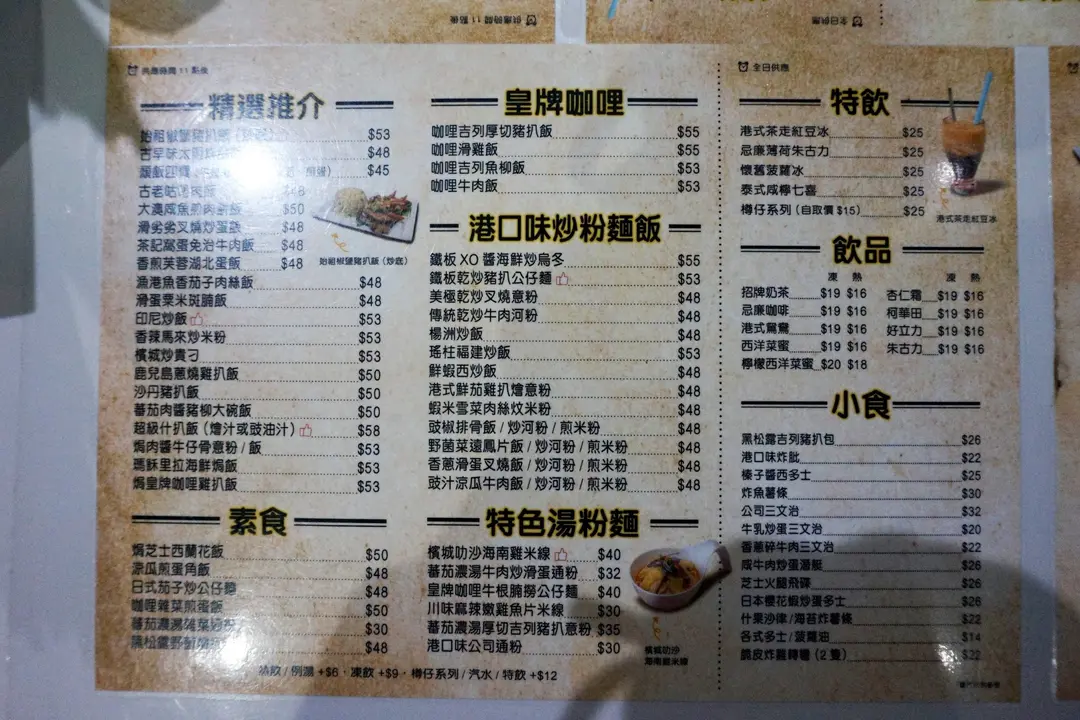 供應時間 11 點後
精選推介
始祖椒鹽豬扒飯 $53
古早味 $48
$45
古老咕 $48
大澳咸魚煎肉餅飯 $50
滑旁旁叉燒炒蛋飯 $48
茶記窩蛋免治牛肉飯 $48
香煎芙蓉湖北蛋飯 $48
始祖椒鹽豬扒飯 (炒底)
漁港魚香茄子肉絲飯 $48
滑蛋粟米斑腩飯 $48
印尼炒飯 $53
香辣馬來炒米粉 $53
檳城炒貴刁 $53
鹿兒島蔥燒雞扒飯 $50
沙丹豬扒飯 $50
蕃茄肉醬豬柳大碗飯 $50
超級什扒飯 (燴汁或豉油汁) $58
焗肉醬牛仔骨意粉 / 飯 $53
瑪穌里拉海鮮焗飯 $53
焗皇牌咖喱雞扒飯 $53
素食
焗芝士西蘭花飯 $50
涼瓜煎蛋角飯 $48
日式茄子炒公仔麵 $48
咖喱雜菜煎蛋飯 $50
蕃茄濃湯雜菜通粉 $30
$48
皇牌咖哩
咖哩吉列厚切豬扒飯 $55
咖哩滑雞飯 $55
咖哩吉列魚柳飯 $53
咖哩牛肉飯 $53
港口味炒粉麵飯
鐵板 XO 醬海鮮炒烏冬 $55
鐵板乾炒豬扒公仔麵 $53
美極乾炒叉燒意粉 $48
傳統乾炒牛肉河粉 $48
楊洲炒飯 $48
瑤柱福建炒飯 $53
鮮蝦西炒飯 $48
港式鮮茄雞扒燴意粉 $48
蝦米雪菜肉絲炆米粉 $48
豉椒排骨飯 / 炒河粉 / 煎米粉 $48
野菌菜遠鳳片飯 / 炒河粉 / 煎米粉 $48
香蔥滑蛋叉燒飯 / 炒河粉 / 煎米粉 $48
豉汁涼瓜牛肉飯 / 炒河粉 / 煎米粉 $48
特色湯粉麵
檳城叻沙海南雞米線 $40
蕃茄濃湯牛肉炒滑蛋通粉 $32
皇牌咖哩牛根腩撈公仔麵 $40
川味麻辣嫩雞魚片米線 $30
蕃茄濃湯厚切吉列豬扒意粉 $35
港口味公司通粉 $30
檳城叻沙
海南雞米線
熱飲 / 例湯 +$6，凍飲 +$9，樽仔系列 / 汽水 / 特飲 +$12
全日供應
特飲
港式茶走紅豆冰 $25
忌廉薄荷朱古力 $25
懷舊菠蘿冰 $25
泰式咸檸七喜 $25
樽仔系列 (自取價 $15) $25
港式茶走紅豆冰
飲品
凍 熱 凍 熱
招牌奶茶 $19 $16 杏仁霜 $19 $16
忌廉咖啡 $19 $16 柯華田 $19 $16
港式鴛鴦 $19 $16 好立力 $19 $16
西洋菜蜜 $19 $16 朱古力 $19 $16
檸檬西洋菜蜜 $20 $18
小食
黑松露吉列豬扒包 $26
港口味炸髀 $22
榛子醬西多士 $25
炸魚薯條 $30
公司三文治 $32
牛乳炒蛋三文治 $20
香蔥碎牛肉三文治 $22
咸牛肉炒蛋潛艇 $26
芝士火腿飛碟 $26
日本櫻花蝦炒蛋多士 $26
什果沙律 / 海苔炸薯條 $22
各式多士 / 菠蘿油 $14
脆皮炸雞轉彎 (2 隻) $22